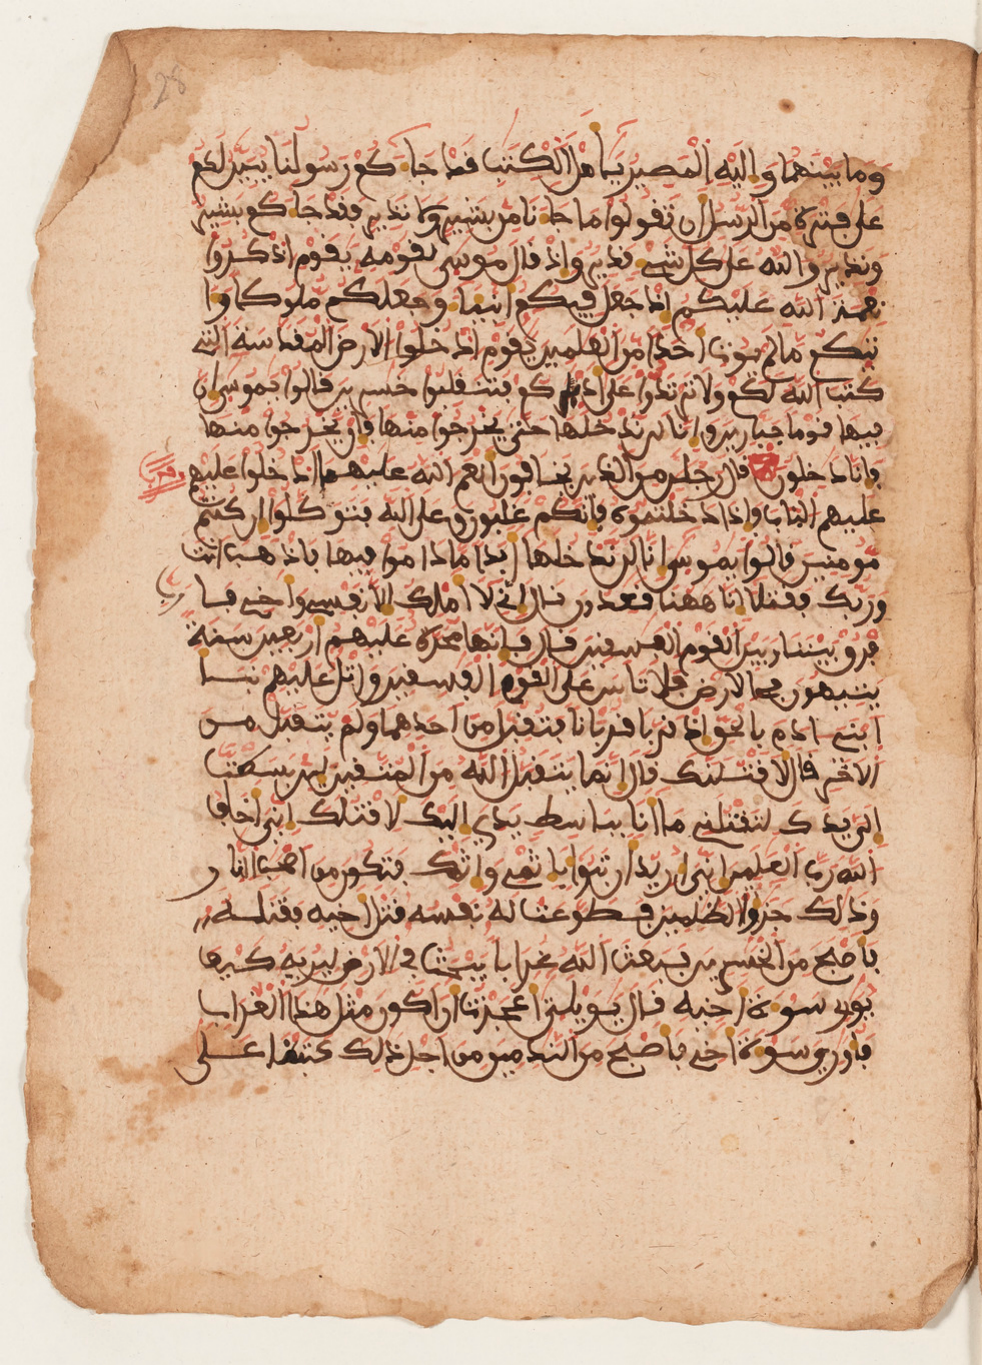 28
وما بينهما واليه المصير يأهل الكتب قد جاكم رسولنا يبين لكم
على فترة من الرسل ان تقولوا ما جانا من بشير ولا نذير فقد جاكم بشير
ونذير والله على كل شيء قدير واذ قال موسى لقومه يقوم اذكروا
نعمت الله عليكم اذ جعل فيكم انبيا وجعلكم ملوكا وا
تيكم ما لم يوت احدا من العلمين يقوم ادخلوا الارض المقدسة التي
كتب الله لكم ولا ترتدوا على ادبركم فتنقلبوا خسرين قالوا يموسى ان
فيها قوما جبارين وانا لن ندخلها حتى يخرجوا منها فان يخرجوا منها
فانا دخلون قال رجلن من الذين يخافون انعم الله عليهما ادخلوا عليهم
عليهم الباب فاذا دخلتموه فانكم غلبون وعلى الله فتوكلوا ان كنتم
مومنين قالوا يموسى انا لن ندخلها ابدا ما داموا فيها فاذهب انت
وربك فقتلا انا ههنا قعدون قال اني لا املك الا نفسي واخي فا
فرق بيننا وبين القوم الفسقين قال فانها محرمة عليهم اربعين سنة
يتيهون في الارض فلا تاس على القوم الفسقين واتل عليهم نبا
ابني ادم بالحق اذ قربا قربانا فتقبل من احدهما ولم يتقبل من
الاخر قال لاقتلنك قال انما يتقبل الله من المتقين لين بسطت
الي يدك لتقتلني ما انا بباسط يدي اليك لاقتلك اني اخاف
الله رب العلمين اني اريد ان تبوا باثمي واثمك فتكون من اصحب النار
وذلك جزوا الظلمين فطوعت له نفسه قتل اخيه فقتله
فاصبح من الخسرين فبعث الله غرابا يبحث في الارض ليريه كيف
يوري سوءة اخيه قال يويلتى اعجزت ان اكون مثل هذا الغراب
فاوري سوءة اخي فاصبح من الندمين من اجل ذلك كتبنا على